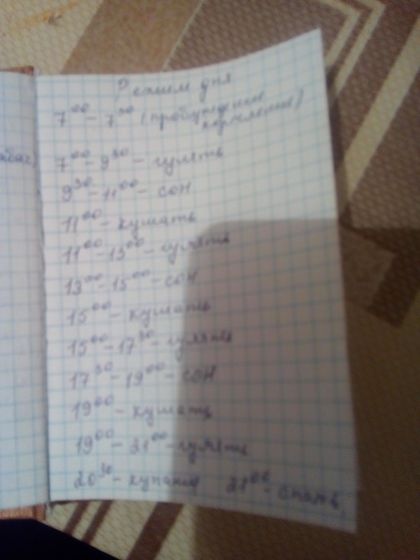 Режим дня
7⁰⁰-7³⁰ (пробуждение
кормление)
7⁰⁰-9³⁰- гулять
9³⁰-11⁰⁰- сон
11⁰⁰- кушать
11⁰⁰-13⁰⁰- гулять
13⁰⁰-15⁰⁰- сон
15⁰⁰- кушать
15⁰⁰-17³⁰- гулять
17³⁰-19⁰⁰- сон
19⁰⁰- кушать
19⁰⁰-21⁰⁰- гулять
20³⁰- купание 21⁰⁰- спать